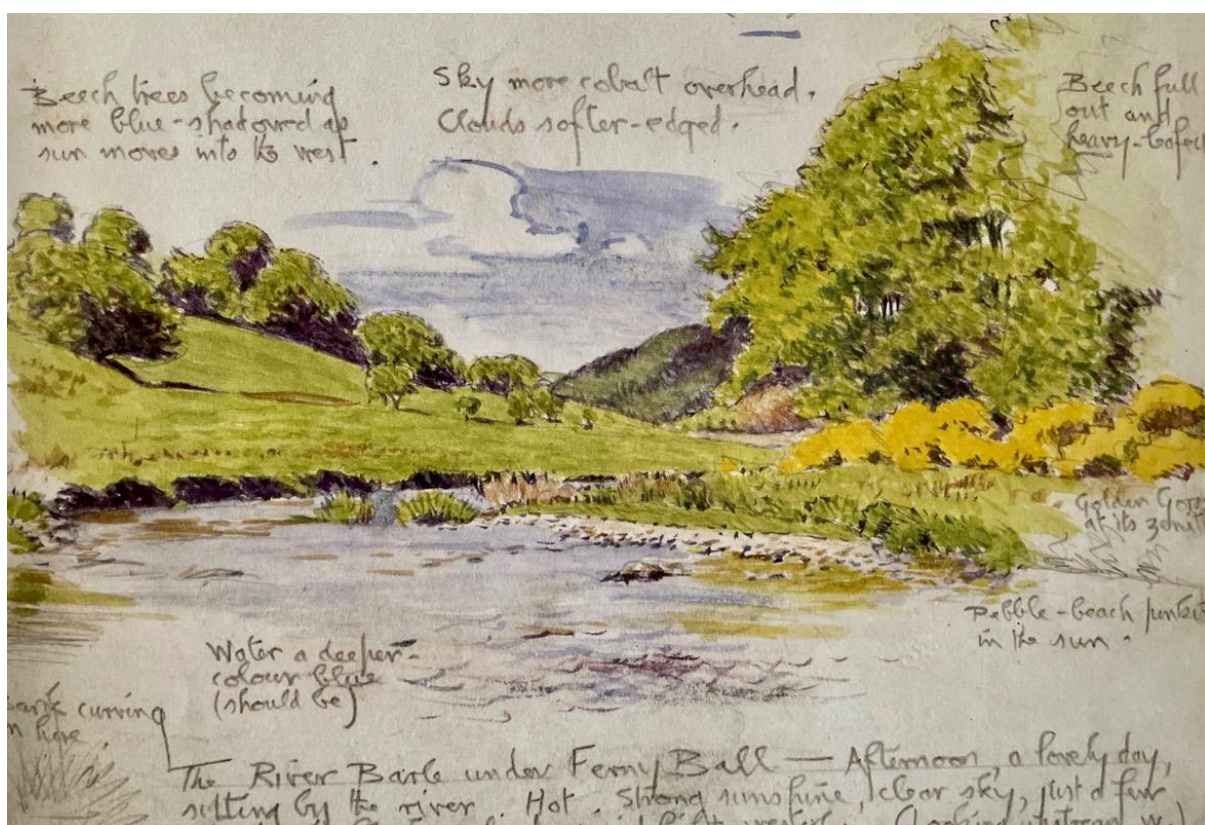 Beech trees becoming
more blue-shadowed as
sun moves into the west.
Sky more cobalt overhead.
Clouds softer-edged.
Beech full
out and
heavy-leafed
Golden Gors
at its zenith
Pebble-beach
in the sun.
Water a deeper
colour blue
(should be)
curving
here.
The River Barle under Ferny Ball — Afternoon, a lovely day,
sitting by the river. Hot. Strong sunshine, clear sky, just a few